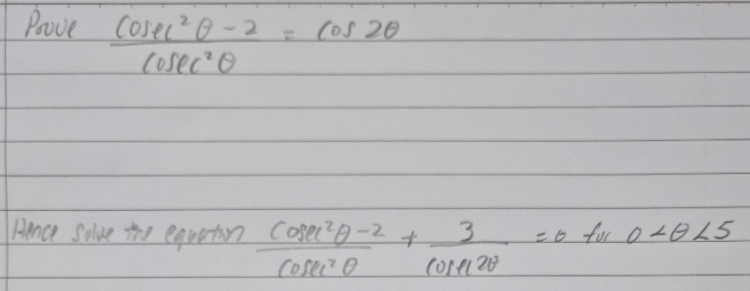 Prove (cosec²θ - 2)/(cosec²θ) = cos 2θ
Hence solve the equation (cosec²θ - 2)/(cosec²θ) + 3/(cosec 2θ) = 0 for 0 < θ < 5